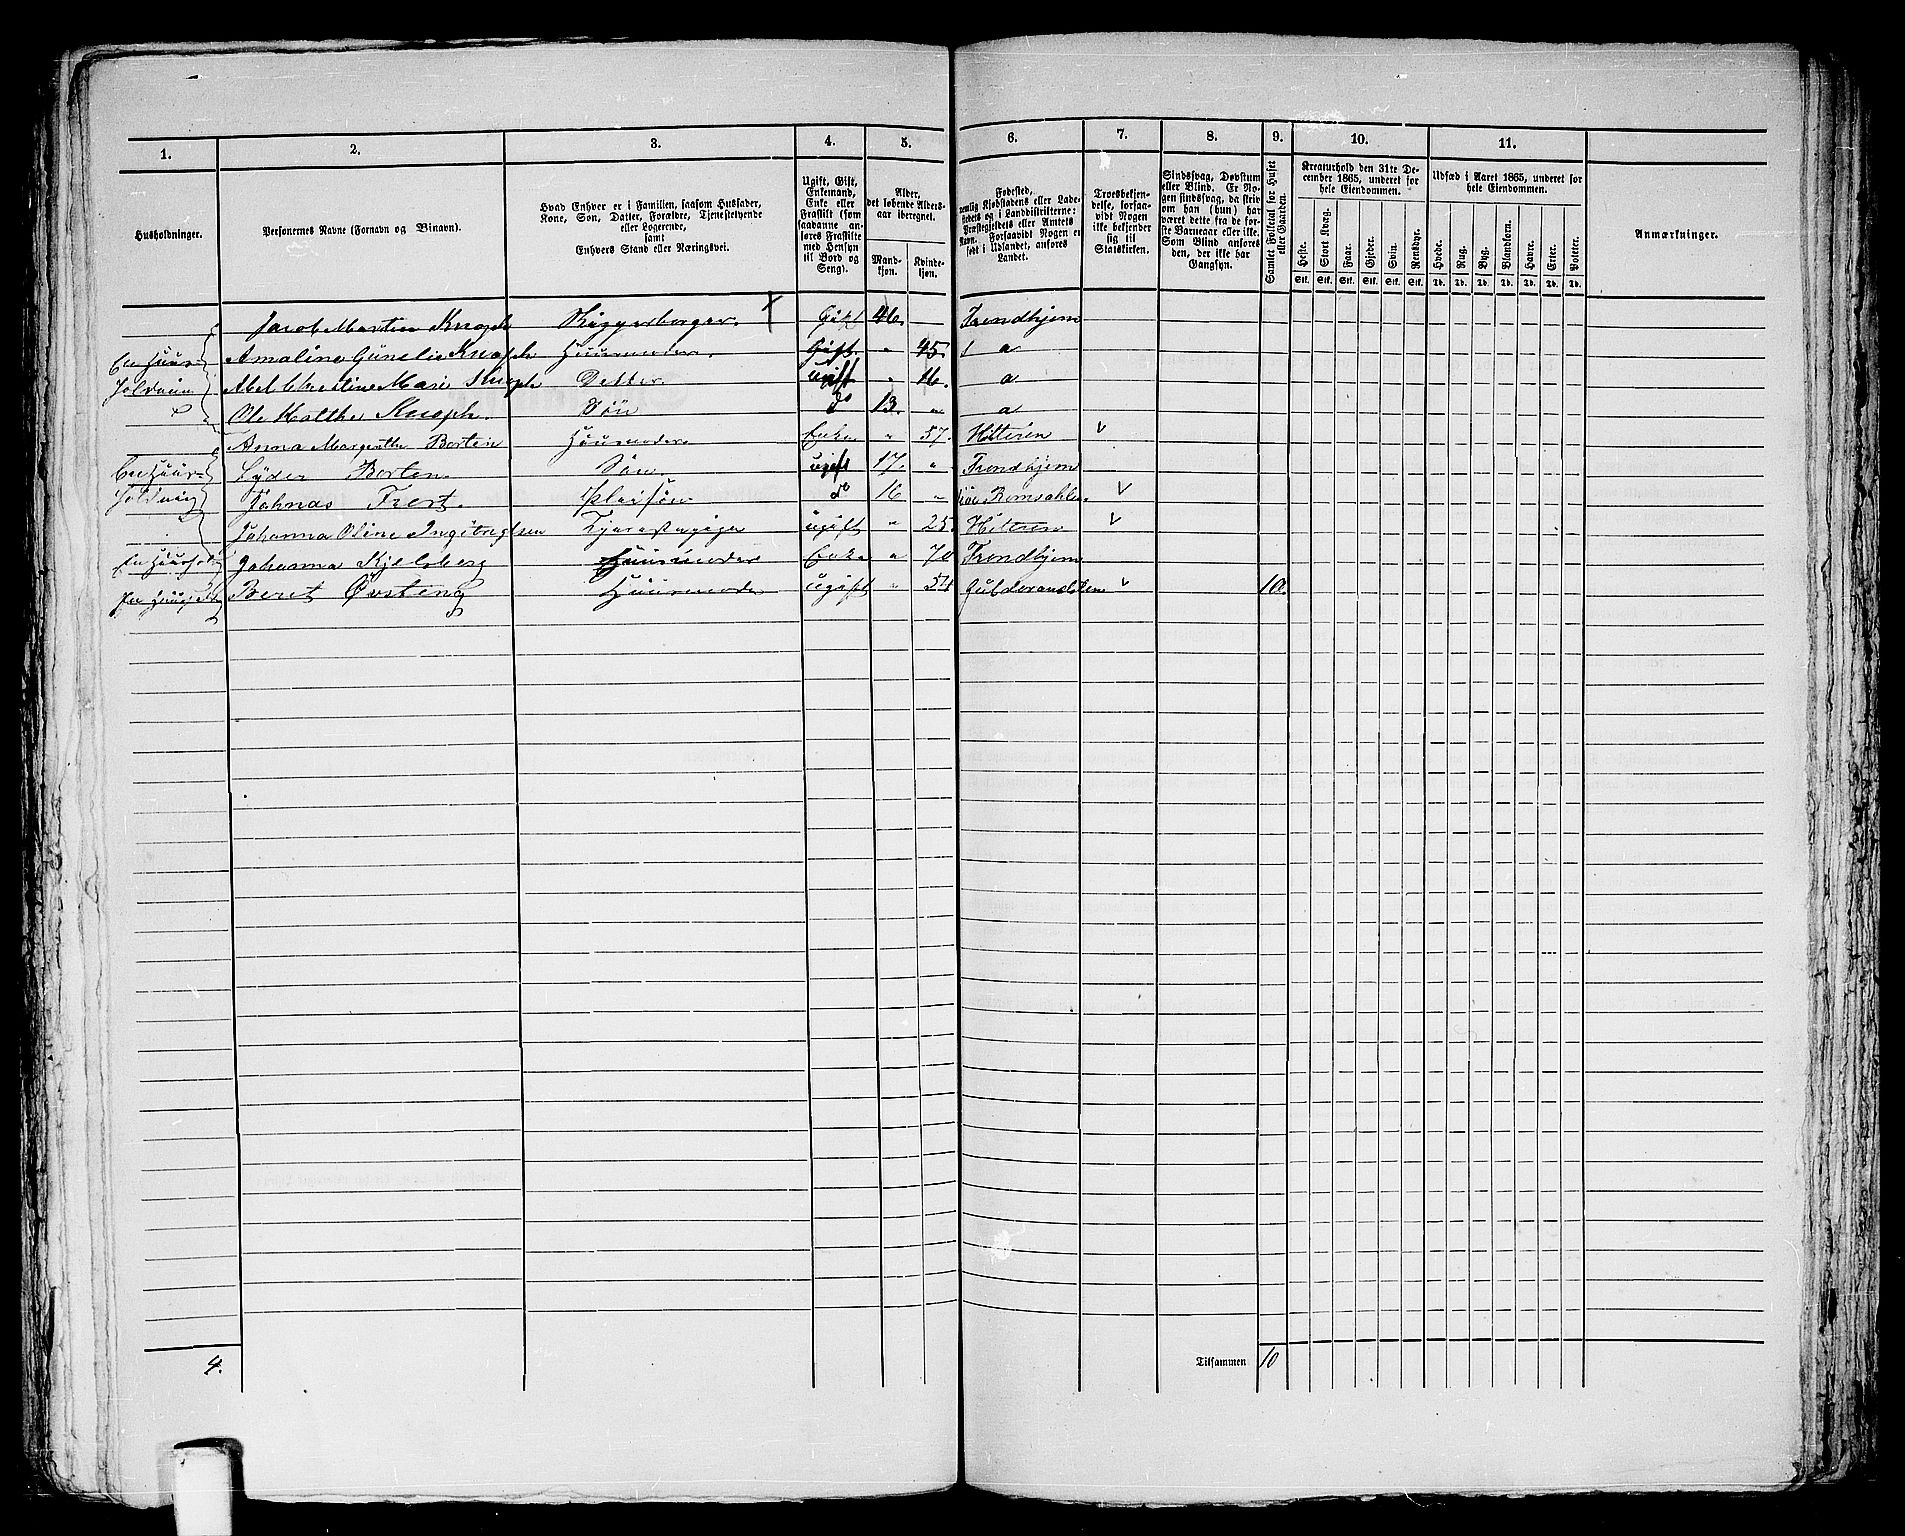 1. 2. 3. 4. 5. 6. 7. 8. 9. 10. 11.
Husholdninger.
Personernes Navne (Fornavn og Binavn).
Hvad Enhver er i Familien, saasom Husfader,
Kone, Søn, Datter, Forældre, Tjenestetyende
eller Logerende,
samt
Enhvers Stand eller Næringsvei.
Ugift, Gift,
Enkemand,
Enke eller
Fraskilt (som
saadanne an-
føres Fraskilte
med Hensyn
til Bord og
Seng).
Alder,
det løbende Alders-
aar iberegnet.
Mand-
kjøn.
Kvinde-
kjøn.
Fødested,
nemlig Kjøbstadens eller Lade-
stedets og i Landdistrikterne:
Præstegjeldets eller Amtets
Navn. Forsaavidt Nogen er
født i Udlandet, anføres
Landet.
Troesbekjen-
delse, forsaa-
vidt Nogen
ikke bekjender
sig til
Statskirken.
Sindssvag, Døvstum
eller Blind. Er No-
gen sindssvag, da skriv
om han (hun) har
været dette fra de før-
ste Barneaar eller ikke.
Som Blind anføres
den, der ikke har
Gangsyn.
Samlet Folketal for Huset
eller Gaarden.
Kreaturhold den 31te De-
cember 1865, underet for
hele Eiendommen.
Heste. Stort Kvæg. Faar. Gjeder. Svin. Rensdyr.
Stk. Stk. Stk. Stk. Stk. Stk.
Udsæd i Aaret 1865, underet for
hele Eiendommen.
Hvede. Rug. Byg. Blandkorn. Havre. Erter. Poteter.
Td. Td. Td. Td. Td. Td. Td.
Anmærkninger.
Jacob Martin Knoph Gift 46. Trondhjem
En Huus- Amalina Knoph Huusmoder. Gift. " 45.
Mari Knoph Detter. ugift " 16.
Ole Malthe Knoph. Sön do 13. "
Anna Margrethe Borten Huusmoder Enke " 57. Hitteren
En Huus- Lyder Borten Sön. ugift 17. " Trondhjem
Johnas Pleisön do 16 "
Johanna Oline ugift " 25. Hitteren
Johanna Kjelsberg Huusmoder Enke " 70 Trondhjem
Beret Huusmoder ugift " 10.
4. Tilsammen 10